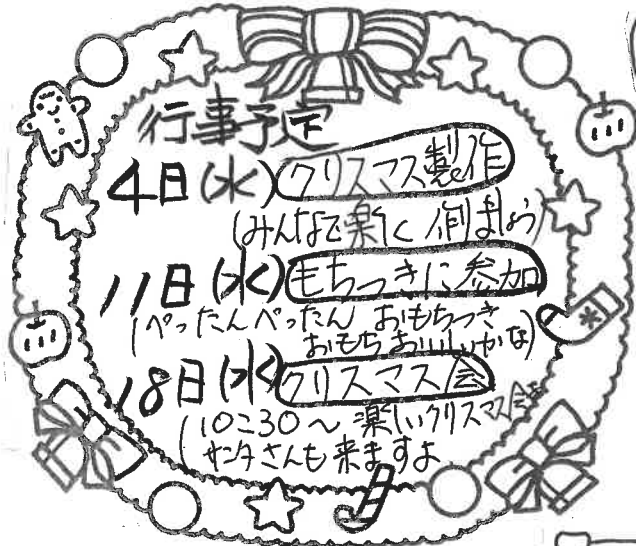 行事予定
4日(水) クリスマス製作
(みんなで楽しく作りましょう)
11日(水) もちつきに参加
(ぺったんぺったん おもちつき
おもちおいしいかな)
18日(水) クリスマス会
(10:30～ 楽しいクリスマス会
サンタさんも来ますよ